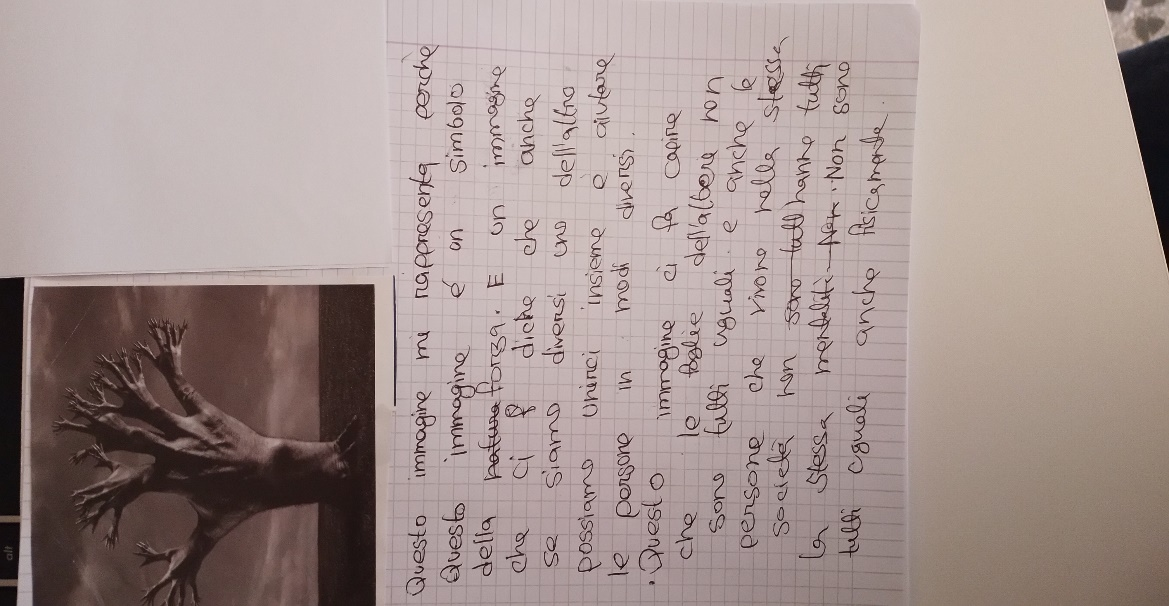 Questo immagine mi rappresenta perchè
Questo immagine é un simbolo
della natura forza. E un immagine
che ci diche che anche
se siamo diversi uno dell'altro
possiamo unirci insieme e aiutare
le persone in modi diversi.
. Questo immagine ci fa capire
che le foglie dell'albero non
sono tutti uguali. e anche le
persone che vivono nella stessa
società non sono tutti hanno tutti
la stessa mentalità. Non. Non sono
tutti uguali anche fisicamente.
alt